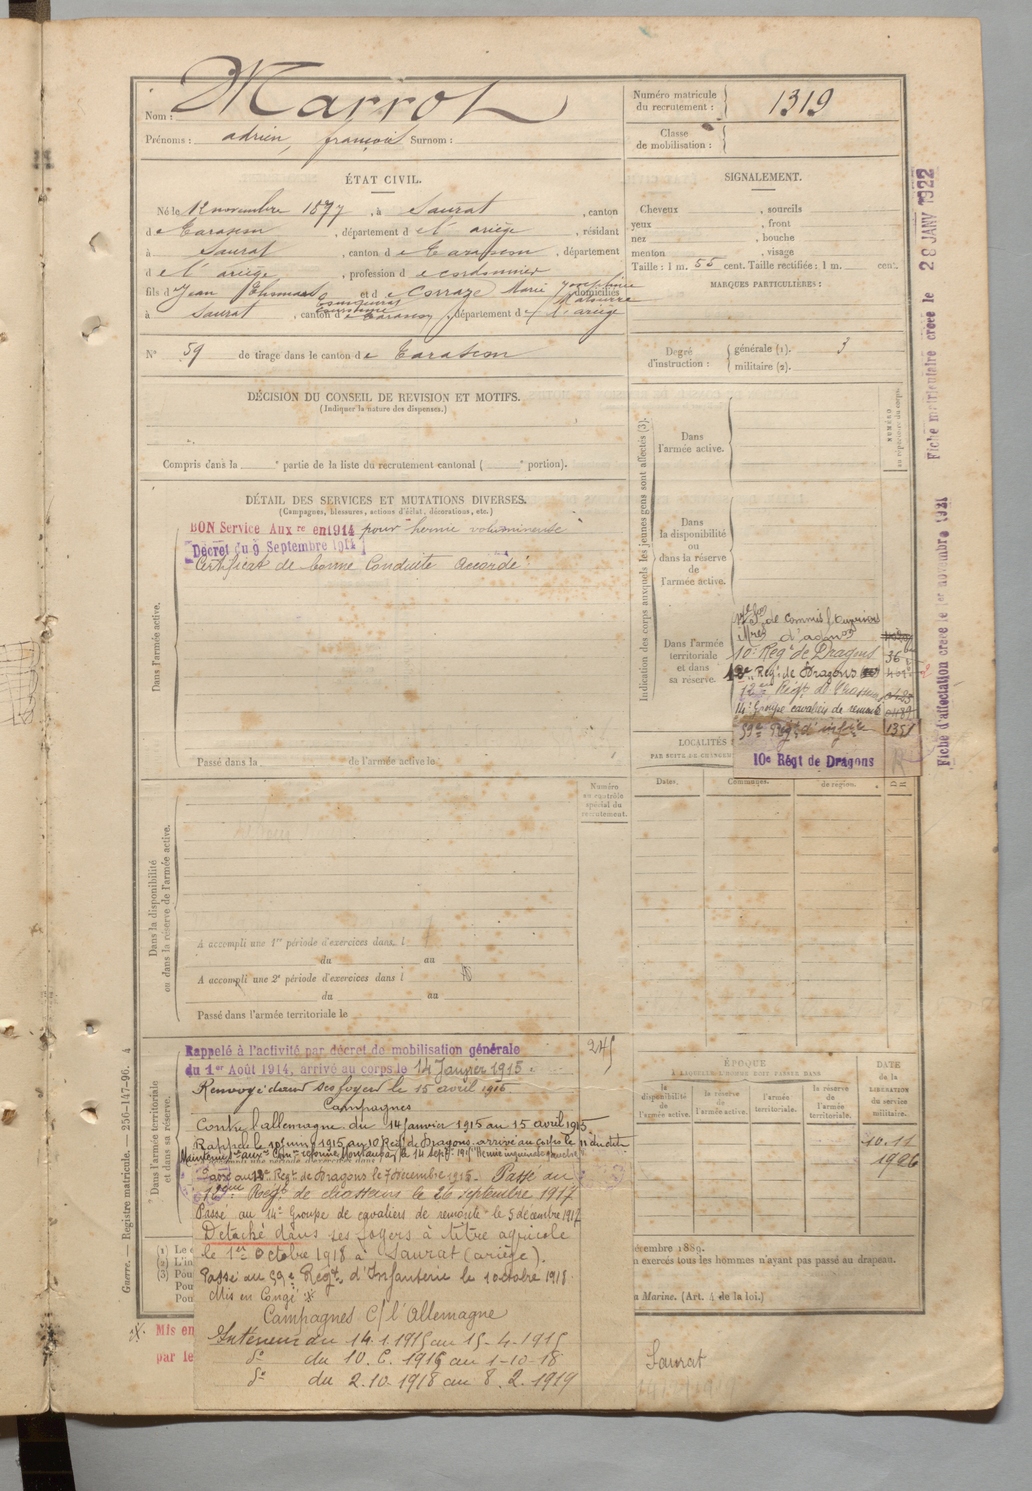 Nom : Marrot
Prénoms : adrien, françois Surnom :
Numéro matricule du recrutement : 1319
Classe de mobilisation :
ÉTAT CIVIL.
Né le 12 novembre 1877, à Saurat, canton
de Tarascon, département de l'ariège, résidant
à Saurat, canton de Tarascon, département
de l'ariège, profession de cordonnier
fils de Jean Thomas et de Corraze Marie Josephine domiciliés
à Saurat, canton de Tarascon, département de l'ariège
N° 59 de tirage dans le canton de Tarascon
SIGNALEMENT.
Cheveux , sourcils
yeux , front
nez , bouche
menton , visage
Taille : 1 m. 55 cent. Taille rectifiée : 1 m. cent.
MARQUES PARTICULIÈRES :
Degré d'instruction : générale (1). 3
militaire (2).
DÉCISION DU CONSEIL DE REVISION ET MOTIFS.
(Indiquer la nature des dispenses.)
Compris dans la e partie de la liste du recrutement cantonal ( e portion).
DÉTAIL DES SERVICES ET MUTATIONS DIVERSES.
(Campagnes, blessures, actions d'éclat, décorations, etc.)
BON Service Aux re en 1914 pour hernie volumineuse
Décret du 9 Septembre 1914
Certificat de bonne Conduite Accordé
Dans l'armée active.
Passé dans la de l'armée active le
Indication des corps auxquels les jeunes gens sont affectés (3).
NUMÉRO au répertoire du corps.
Dans l'armée active.
Dans la disponibilité ou dans la réserve de l'armée active.
Dans l'armée territoriale et dans sa réserve.
de Commis Ouvriers
d'adm on
10e Regt de Dragons 36
Regt de Dragons
14e Groupe cavaliers de remonte
59e Regt d'infie 1351
10e Régt de Dragons
LOCALITÉS
PAR SUITE DE CHANGEM
Dates. Communes. de région.
Fiche matriculaire créée le 28 JANV 1922
Fiche d'affectation créée le 1er novembre 1921
Dans la disponibilité ou dans la réserve de l'armée active.
Numéro au contrôle spécial du recrutement.
A accompli une 1re période d'exercices dans l
du au
A accompli une 2e période d'exercices dans l
du au
Passé dans l'armée territoriale le
Dans l'armée territoriale et dans sa réserve.
Rappelé à l'activité par décret de mobilisation générale
du 1er Août 1914, arrivé au corps le 14 Janvier 1915.
Renvoyé dans ses foyers le 15 avril 1915
Campagnes
Contre l'allemagne du 14 janvier 1915 au 15 avril 1915
Rappelé le 10 juin 1915 au 10 Regt de Dragons arrivé au corps le 11 du dit
Passé au Regt de Dragons le 7 décembre 1916. Passé au
Regt de chasseurs le 26 septembre 1917
Passé au 14e Groupe de cavaliers de remonte le 5 décembre 1917
Detaché dans ses foyers à titre agricole
le 1er Octobre 1918 à Saurat (ariège).
Passé au 59e Régt d'Infanterie le 1 octobre 1918
Mis en Congé
Campagnes C/ l'Allemagne
Intérieur du 14.1.1915 au 15.4.1915
do du 10.6.1915 au 1-10-18
do du 2.10.1918 au 8.2.1919
ÉPOQUE
À LAQUELLE L'HOMME DOIT PASSER DANS
la disponibilité de l'armée active.
la réserve de l'armée active.
l'armée territoriale.
la réserve de l'armée territoriale.
DATE de la LIBÉRATION du service militaire.
10.11
1926
décembre 1889.
n exercés tous les hommes n'ayant pas passé au drapeau.
a Marine. (Art. 4 de la loi.)
(1) Le
(2) L'in
(3) Pou
Pou
Pou
Mis en
par le
Saurat
Guerre. — Registre matricule. — 256-147-96. 4